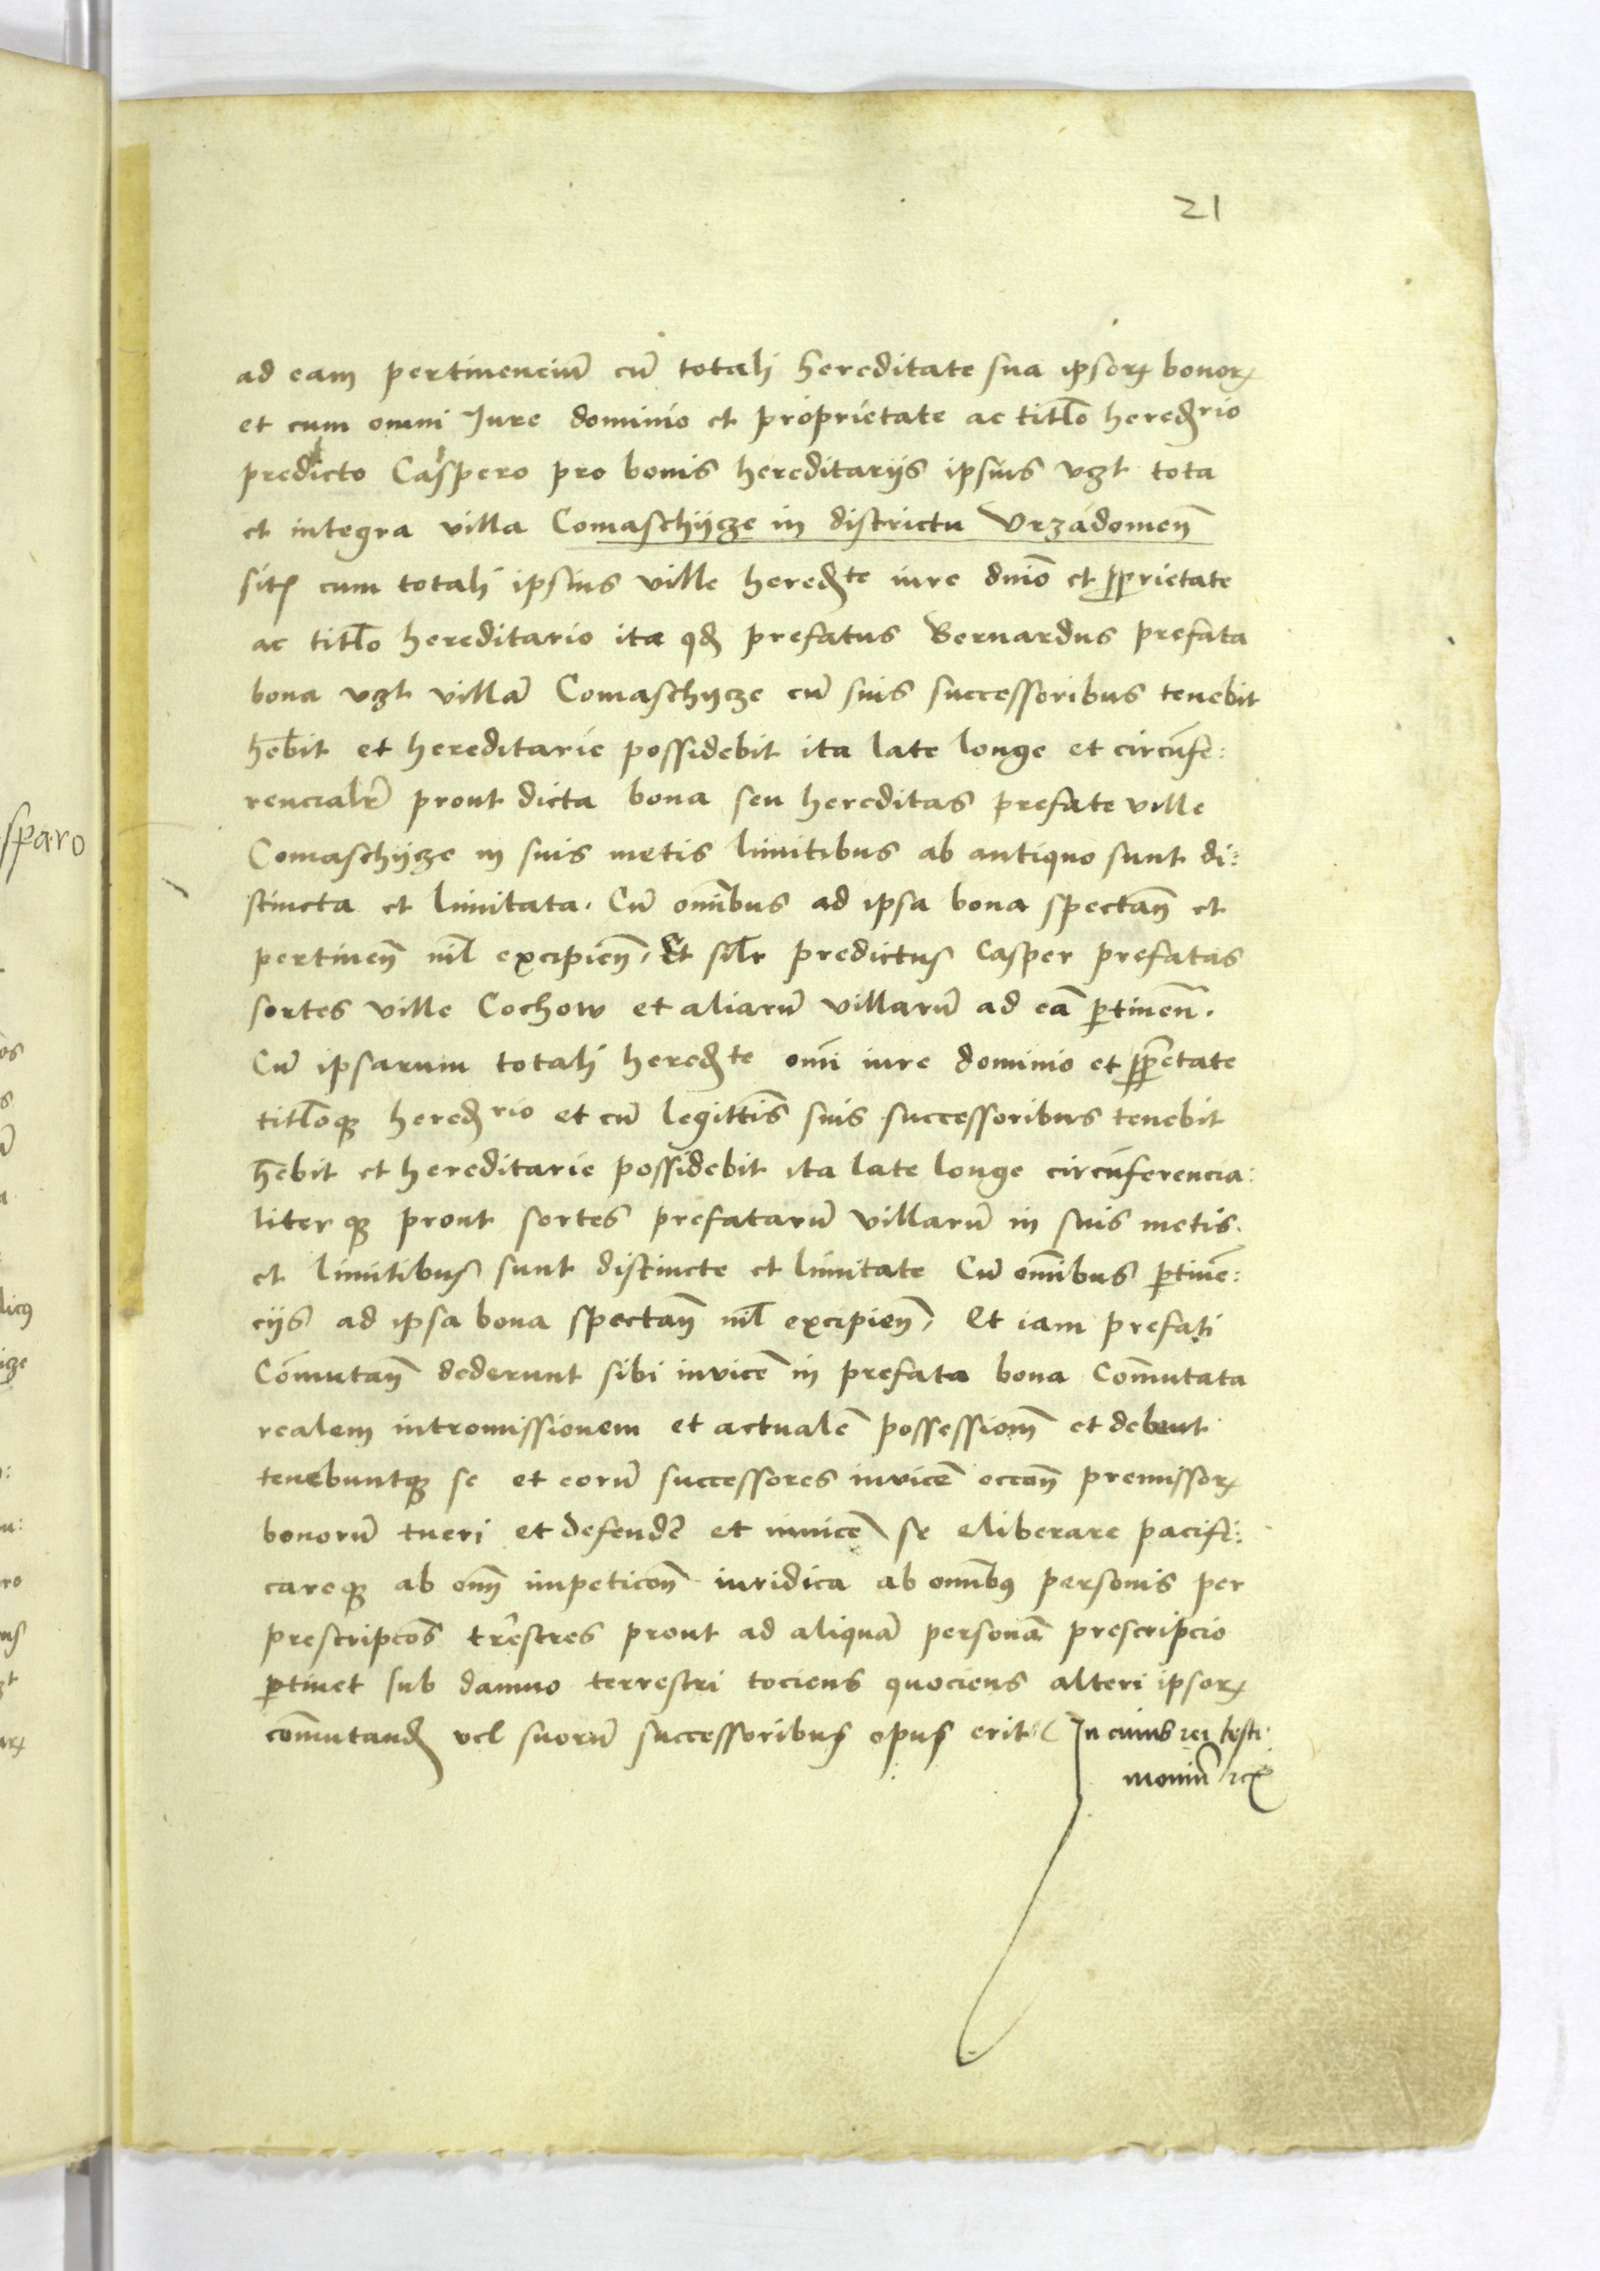 21
ad eam pertinenciũ cũ totali hereditate sua ipsoꝝ bonoꝝ
et cum omni Jure dominio et proprietate ac titl̃o heređrio
predicto Caspero pro bonis hereditariis ipsius vꝫt tota
et integra villa Comaschijcze in districtu Vrzadomeñ
sitꝭ cum totali ipsius ville heređte iure dnĩo et ꝓprietate
ac titl̃o hereditario ita qđ prefatus Bernardus prefata
bona vꝫt villã Comaschijcze cũ suis successoribus tenebit
hẽbit et hereditarie possidebit ita late longe et circũfe:
rencialr̃ prout dicta bona seu hereditas prefate ville
Comaschijcze in suis metis limitibus ab antiquo sunt di:
stincta et limitata. Cũ om̃ibus ad ipsa bona spectañ et
pertineñ nil̃ excipieñ, Et sil̃r predictus Casper prefatas
sortes ville Cochow et aliarũ villarũ ad eã ꝑtineñ.
Cũ ipsarum totali heređte om̃i iure dominio et ꝓpetate
titl̃oqꝫ heređrio et cũ legittĩs suis successoribus tenebit
hẽbit et hereditarie possidebit ita late longe circũferencia:
literqꝫ prout sortes prefatarũ villarũ in suis metis.
et limitibus sunt distincte et limitate Cũ om̃ibus ꝑtinẽ:
ciis ad ipsa bona spectañ nil̃ excipieñ, Et iam prefati
Cõmutañ dederunt sibi invicẽ in prefata bona Cõmutata
realem intromissionem et actualẽ possessionm̃ et debent
tenebuntqꝫ se et eorũ successores invicẽ occoñ premissoꝝ
bonorũ tueri et defender̃ et invicẽ se eliberare pacifi:
careqꝫ ab om̃ impeticoñ iuridica ab om̃ibꝰ personis per
prescripcões tr̃estres prout ad aliquã personã prescripcio
ꝑtinet sub damno terrestri tociens quociens alteri ipsoꝝ
cõmutanđ vel suorũ successoribus opus erit (In cuius rei testi:
moniũ rcꝭ
sparo